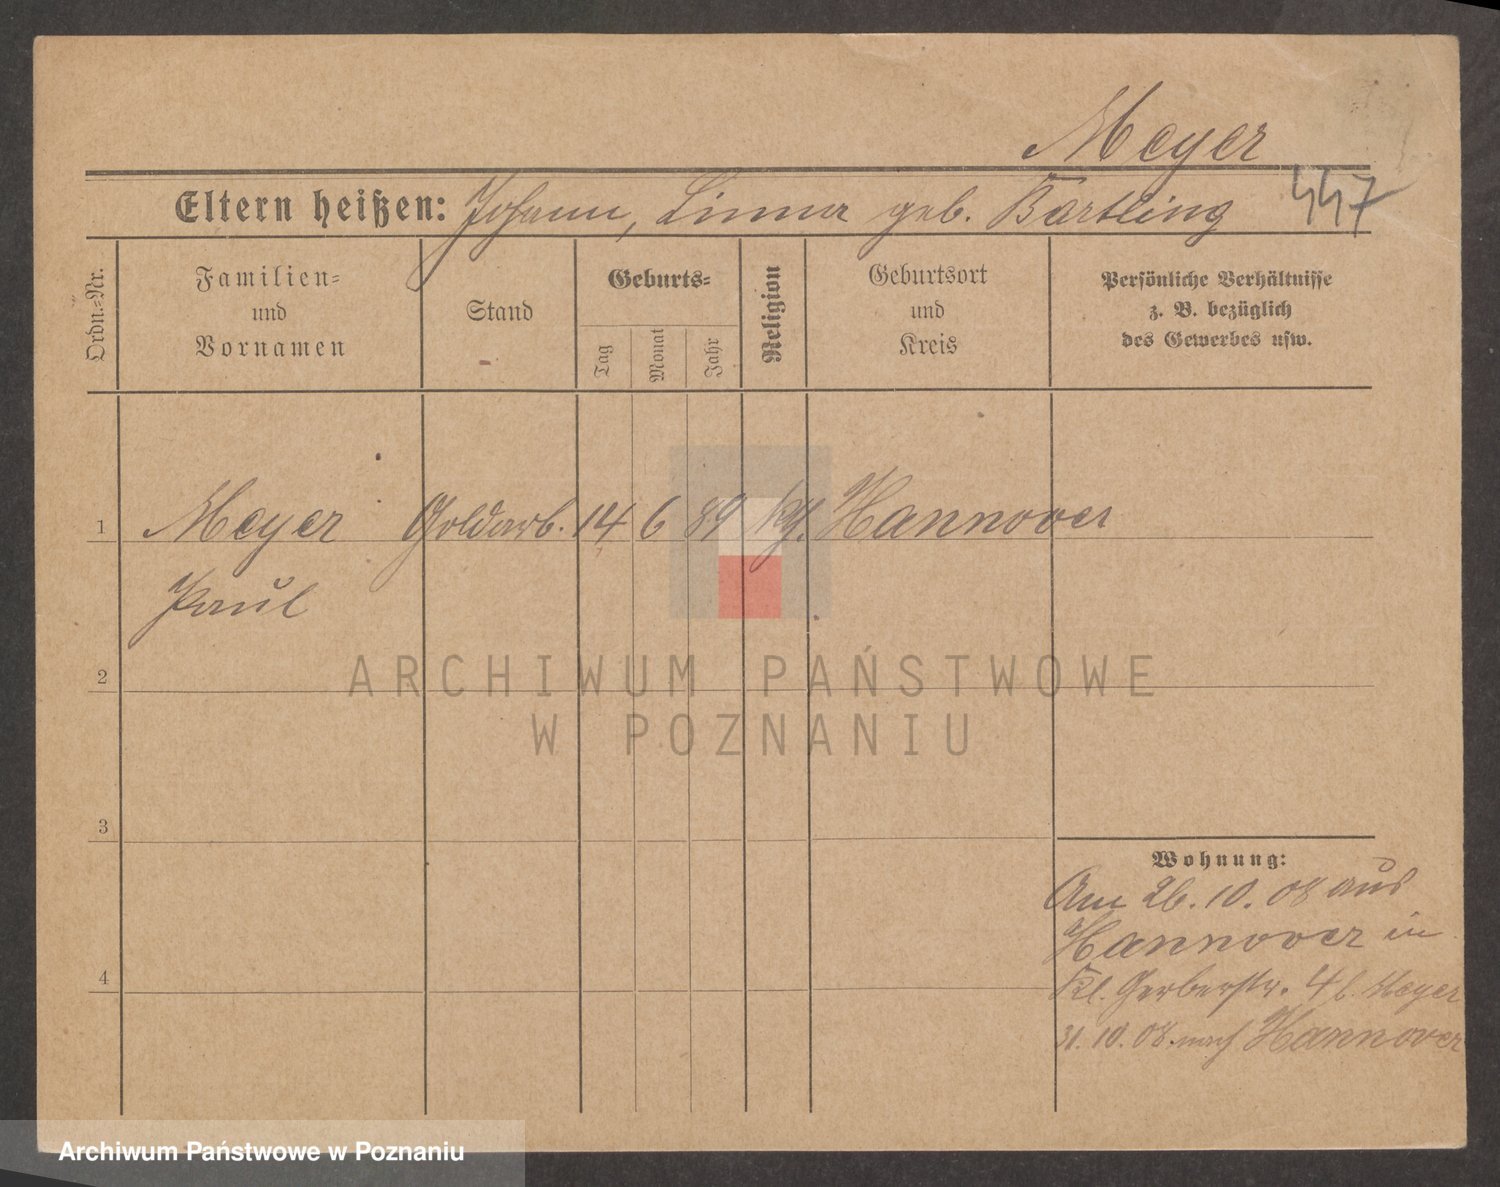 Meyer
447
Eltern heißen: Johann, Linna geb. Bartling
Ordn.=Nr.
Familien=
und
Vornamen
Stand
Geburts=
Tag
Monat
Jahr
Religion
Geburtsort
und
Kreis
Persönliche Verhältnisse
z. B. bezüglich
des Gewerbes usw.
1 Meyer Goldarb. 14 6 89 Hannover
Paul
2
3
4
Wohnung:
Am 26. 10. 08 aus
Hannover in
Kl. Gerberstr. 4 b. Meyer
31. 10. 08. nach Hannover
ARCHIWUM PAŃSTWOWE
W POZNANIU
Archiwum Państwowe w Poznaniu